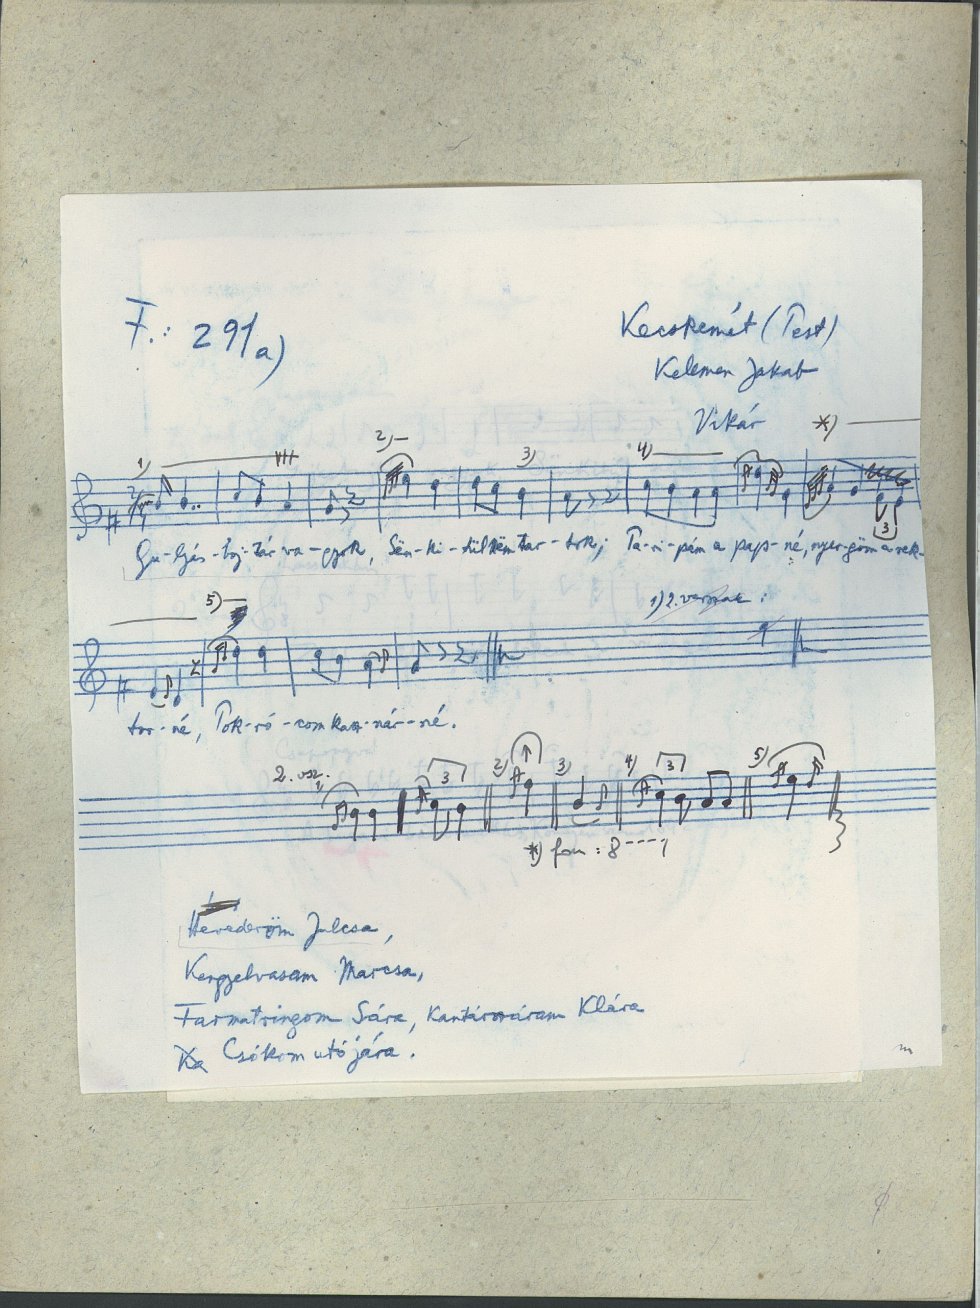 F.: 291/a)
Kecskemét (Pest)
Kelemen Jakab
Vikár
*)
1) 2) 3) 4)
Gu-lyás-boj-tár va-gyok, Sën-ki-tül sëm tar-tok; Ta-ri-pám a pap-né, nyer-göm a rek-
5)
1) 2. versszak :
tor-né, Pok-ró-com kasz-nár-né.
2. vsz.
1) 3 2) 3) 4) 3 5)
*) fon : 8 ---- 1
Hevederöm Julcsa,
Kengyelvasam Marcsa,
Farmatringom Sára, Kantárszáram Klára
Csókom utójára.